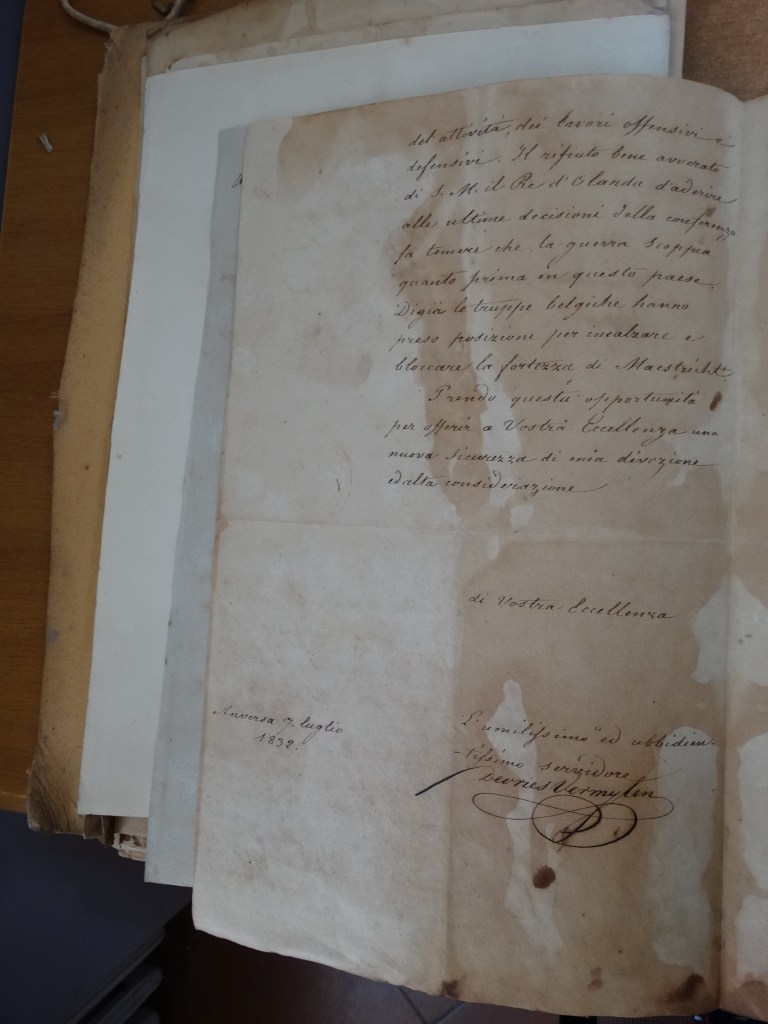 del attività, dei lavori offensivi e
defensivi. Il rifiuto bene avverato
di S. M. il Re d'Olanda d'aderire
alle ultime decisioni della conferenza
fa temere che la guerra scoppia
quanto prima in questo paese.
Digià le truppe belgiche hanno
preso posizioni per incalzare e
bloccare la fortezza di Maestricht.
Prendo questa opportunità
per offerir a Vostra Eccellenza una
nuova sicurezza di mia divozione
ed alta considerazione
di Vostra Eccellenza
Anversa 7 luglio
1832.
L'umilissimo ed ubbidien-
-tissimo servidore
Devries Vermylen